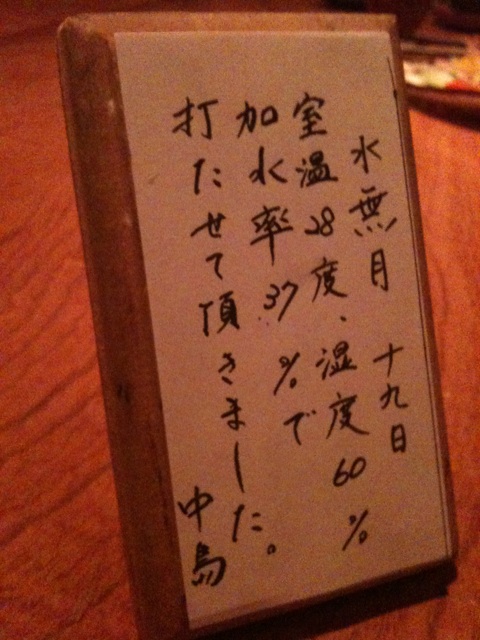 水無月 十九日
室温28度、湿度60%
加水率37%で
打たせて頂きました。
中島